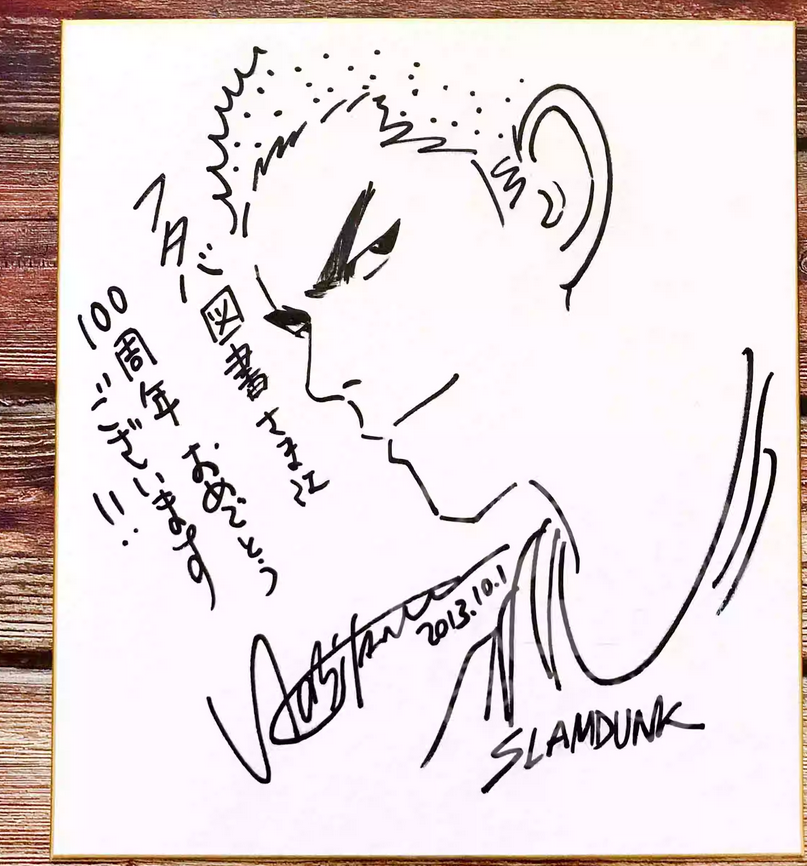 フタバ図書さま江
100周年 おめでとう
ございます!!
2013.10.1
SLAMDUNK